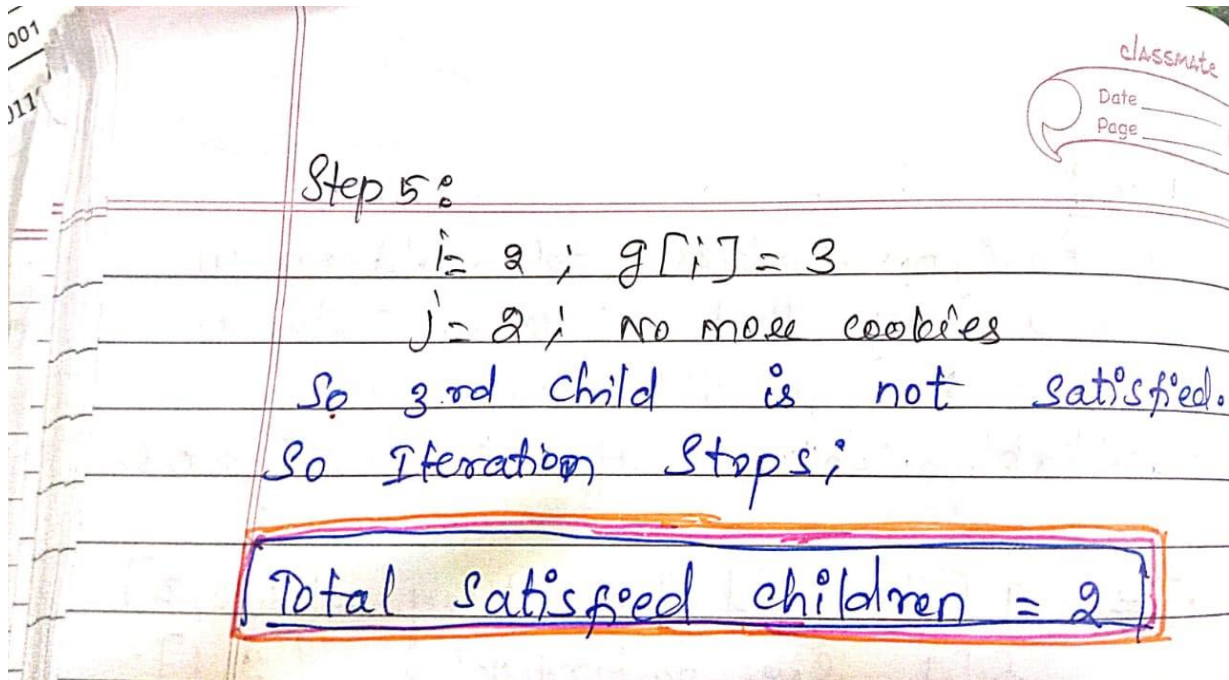 001
011
classmate
Date
Page
Step 5:
i = 2 ; g[i] = 3
j = 2 ; No more cookies
So 3rd child is not satisfied.
So Iteration Stops;
Total Satisfied children = 2